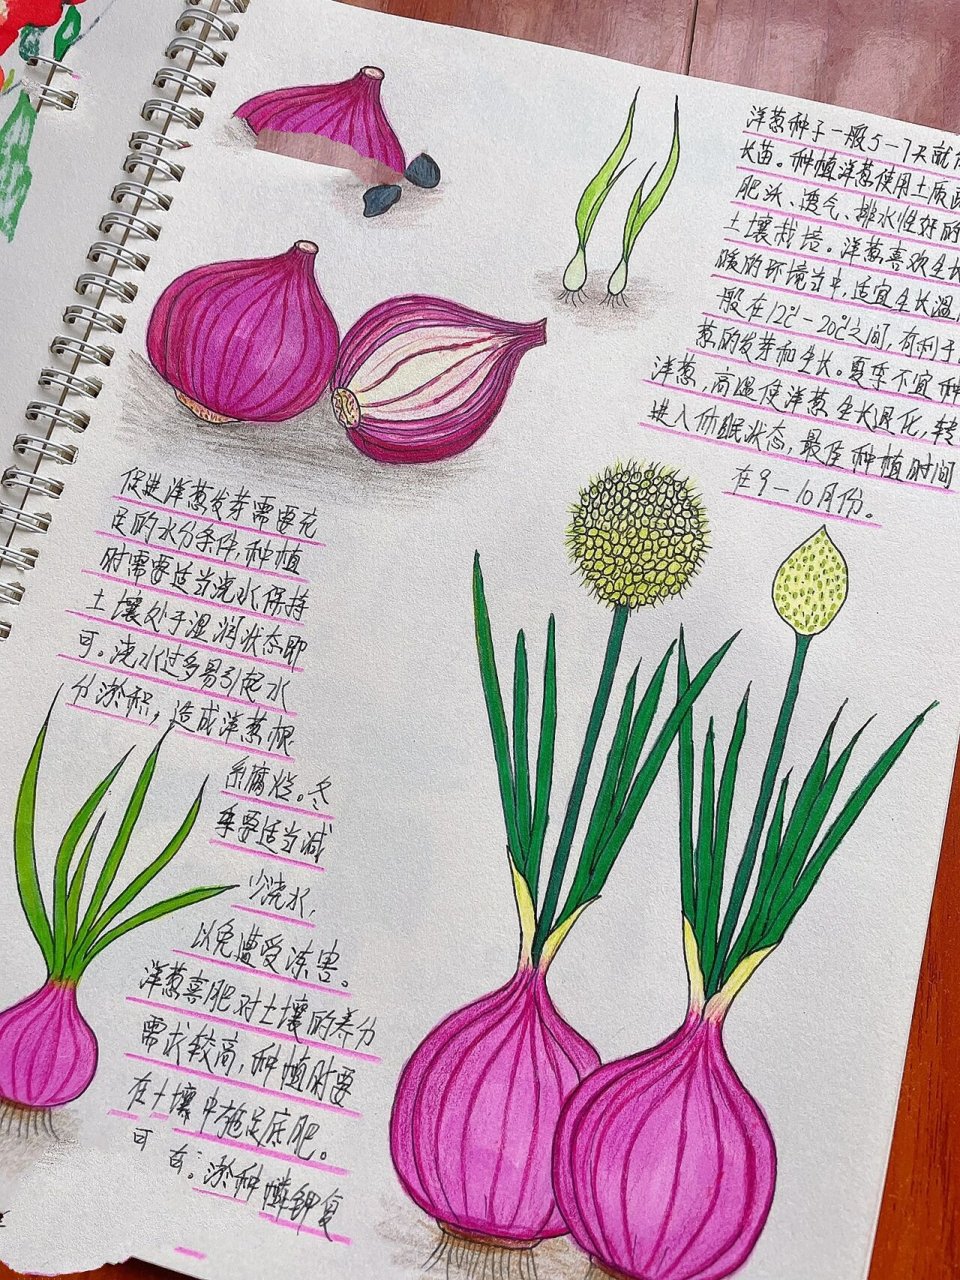 洋葱种子一般5-7天就
长苗。种植洋葱使用土质
肥沃、透气、排水性好的
土壤栽培。洋葱喜欢生长
暖的环境当中,适宜生长温
般在12℃-20℃之间,有利于
葱的发芽和生长。夏季不宜种
洋葱,高温使洋葱生长退化,转
进入休眠状态,最佳种植时间
在9-10月份。
促进洋葱发芽需要充
足的水分条件,种植
时需要适当浇水保持
土壤处于湿润状态即
可。浇水过多易引起水
分淤积,造成洋葱根
系腐烂。冬
季要适当减
少浇水,
以免遭受冻害。
洋葱喜肥对土壤的养分
需求较高,种植时要
在土壤中施足底肥。
可